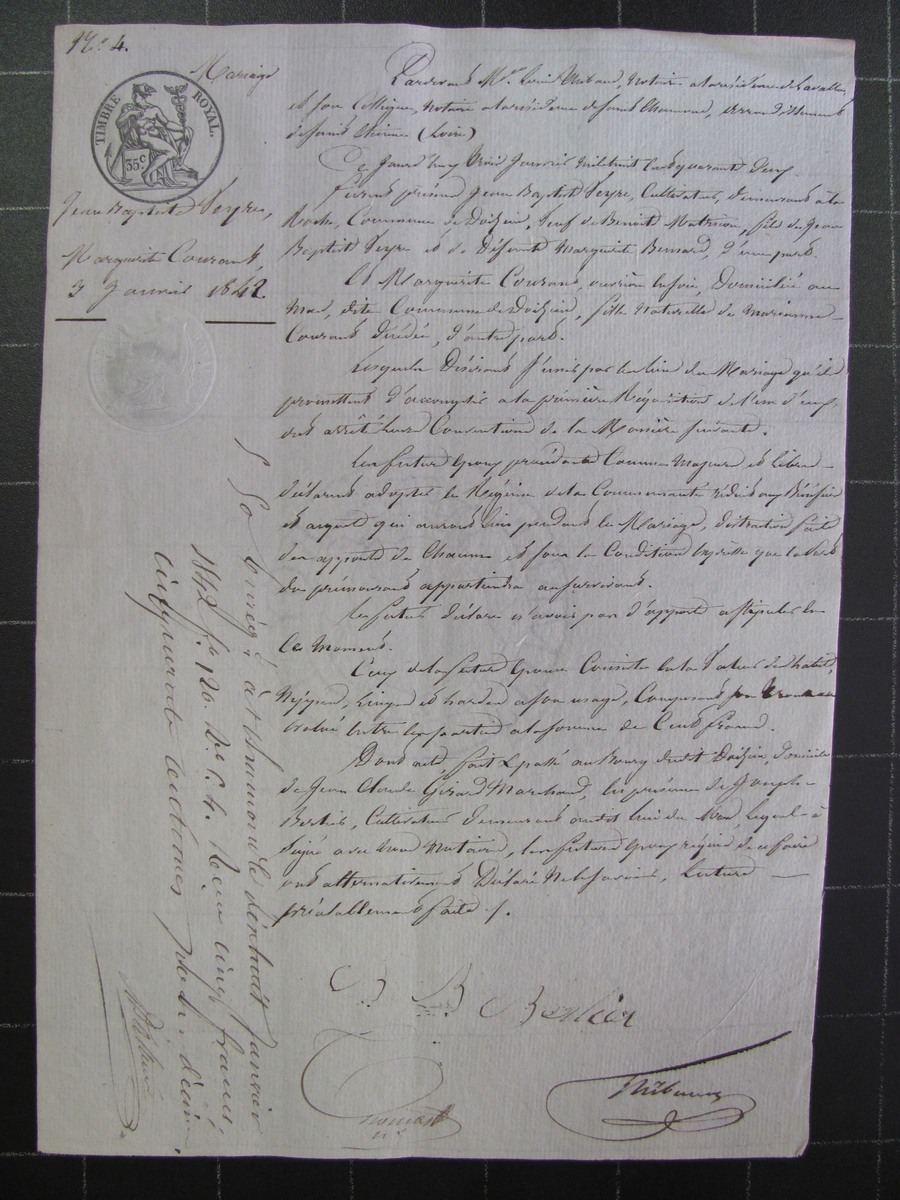 N.o 4.
Mariage
TIMBRE ROYAL.
35.c
Jean Baptiste Peyre,
Marguerite Courant,
3 Janvier 1842.
Pardevant M.e Louis Thibaud, Notaire à la résidence de Lavalla,
et son Collègue, Notaire à la résidence de Saint Chamond, arrondissement
de Saint Etienne (Loire)
Ce jourd'huy trois Janvier mil huit cent quarante deux
Furent présens Jean Baptiste Peyre, Cultivateur, demeurant à la
Roche, Commune de Doizieu, veuf de Benoite Matricon, fils de Jean
Baptiste Peyre et de Défunte Marguerite Bernard, d'une part.
Et Marguerite Courant, ouvrière en soie, Domiciliée au
Mas, dite Commune de Doizieu, fille Naturelle de Marianne
Courant Décédée, d'autre part.
Lesquels Désirant s'unir par les liens du Mariage qu'ils
promettent d'accomplir à la première Réquisition de l'un d'eux,
ont arrêté leurs Conventions de la Manière suivante.
Les future Epoux procédants Comme Majeurs et Libres
déclarent adopter le Régime de la Communauté réduit aux Bénéfices
et argent qui auront lieu pendant le Mariage, distraction faite
des apports de Chacun et sous la Condition Expresse que la part
du prémourant appartiendra au survivant.
Le futur déclare n'avoir pas d'apport à stipuler en
Ce Moment.
Ceux de la future Epouse Consiste en la Valeur des habits,
Nippes, Linges et hardes à son usage, Composant son trousseau
évalué Entre les parties à la somme de Cent francs.
Dont acte, fait & passé au Bourg dudit Doizieu, domicile
de Jean Claude Girard Marchand, En présence de Joseph
Berlier, Cultivateur demeurant audit lieu du Mas, Lequel a
Signé avec Nous Notaires, les future Epoux requis de ce faire
ont alternativement Déclaré Ne le savoir, Lecture
préalablement faite ./.
B B Berlier
Thibaud
n.re
Enreg. à St Chamond le dix huit Janvier
1842 f.o 120. V.o C. 4. Reçu cinq francs,
cinquante centimes pour le décime.